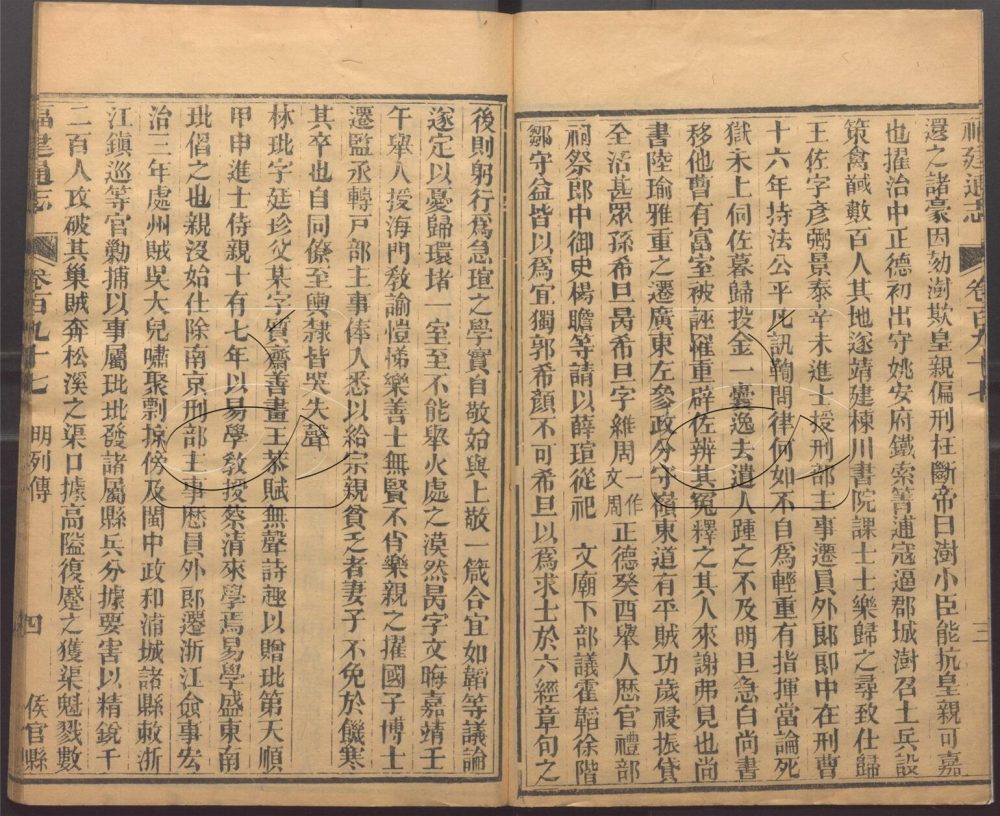 福建通志 卷百九十七 三
還之諸豪因劾澍欺皇親偏刑枉斷帝曰澍小臣能抗皇親可嘉
也擢治中正德初出守姚安府鐵索箐逋寇逼郡城澍召土兵設
策禽馘數百人其地遂靖建棟川書院課士士樂歸之尋致仕歸
王佐字彥弼景泰辛未進士授刑部主事遷員外郎郎中在刑曹
十六年持法公平凡訊鞫問律何如不自爲輕重有指揮當論死
獄未上伺佐暮歸投金一囊逸去遣人踵之不及明旦急白尚書
移他曹有富室被誣罹重辟佐辨其冤釋之其人來謝弗見也尚
書陸瑜雅重之遷廣東左參政分守嶺東道有平賊功歲祲振貸
全活甚眾孫希旦昺希旦字維周一作文周正德癸酉舉人歷官禮部
祠祭郎中御史楊瞻等請以薛瑄從祀 文廟下部議霍韜徐階
鄒守益皆以爲宜獨郭希顏不可希旦以爲求士於六經章句之
後則躬行爲急瑄之學實自敬始與上敬一箴合宜如韜等議論
遂定以憂歸環堵一室至不能舉火處之漠然昺字文晦嘉靖壬
午舉人授海門教諭愷悌樂善士無賢不肖樂親之擢國子博士
遷監丞轉戶部主事俸入悉以給宗親貧乏者妻子不免於饑寒
其卒也自同僚至輿隸皆哭失聲
林玭字廷珍父某字質齋善畫王恭賦無聲詩趣以贈玭第天順
甲申進士侍親十有七年以易學教授蔡清來學焉易學盛東南
玭倡之也親沒始仕除南京刑部主事歷員外郎遷浙江僉事宏
治三年處州賊吳大兒嘯聚剽掠傍及閩中政和浦城諸縣敕浙
江鎮巡等官勦捕以事屬玭玭發諸屬縣兵分據要害以精銳千
二百人攻破其巢賊奔松溪之渠口據高隘復蹙之獲渠魁戮數
福建通志 卷百九十七 明列傳 四 侯官縣